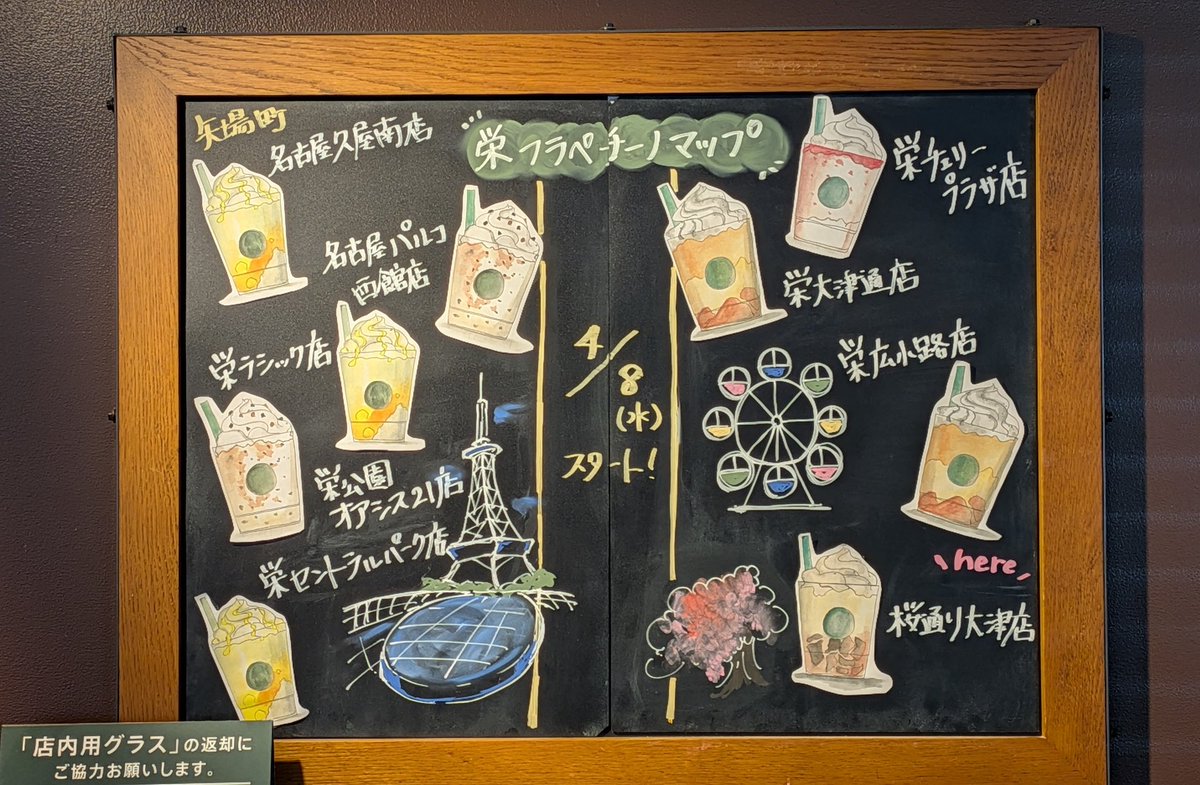 矢場町
名古屋久屋南店
栄 フラペチーノマップ
栄チェリー
プラザ店
名古屋パルコ
西館店
栄大津通店
栄ラシック店
4/8
(水)
スタート!
栄広小路店
栄公園
オアシス21店
栄セントラルパーク店
here
桜通り大津店
「店内用グラス」の返却に
ご協力お願いします。